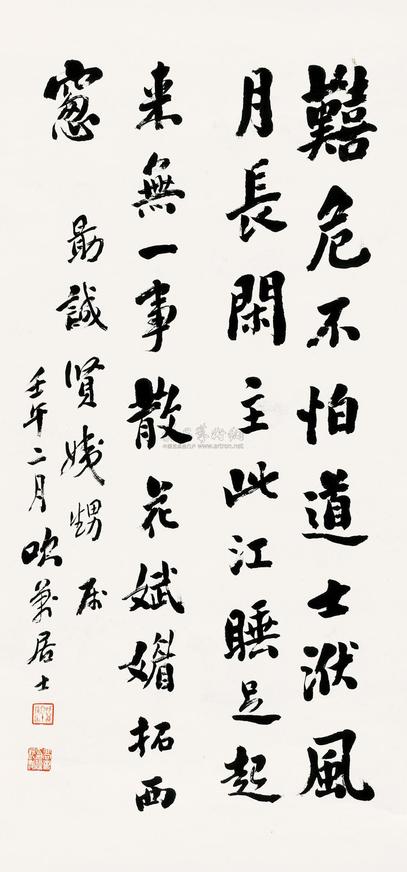 囏危不怕道士洑風
月長閑主此江睡足起
来無一事散花斌媚拓西
窻
勗誠賢姨甥属
壬午二月吹萬居士